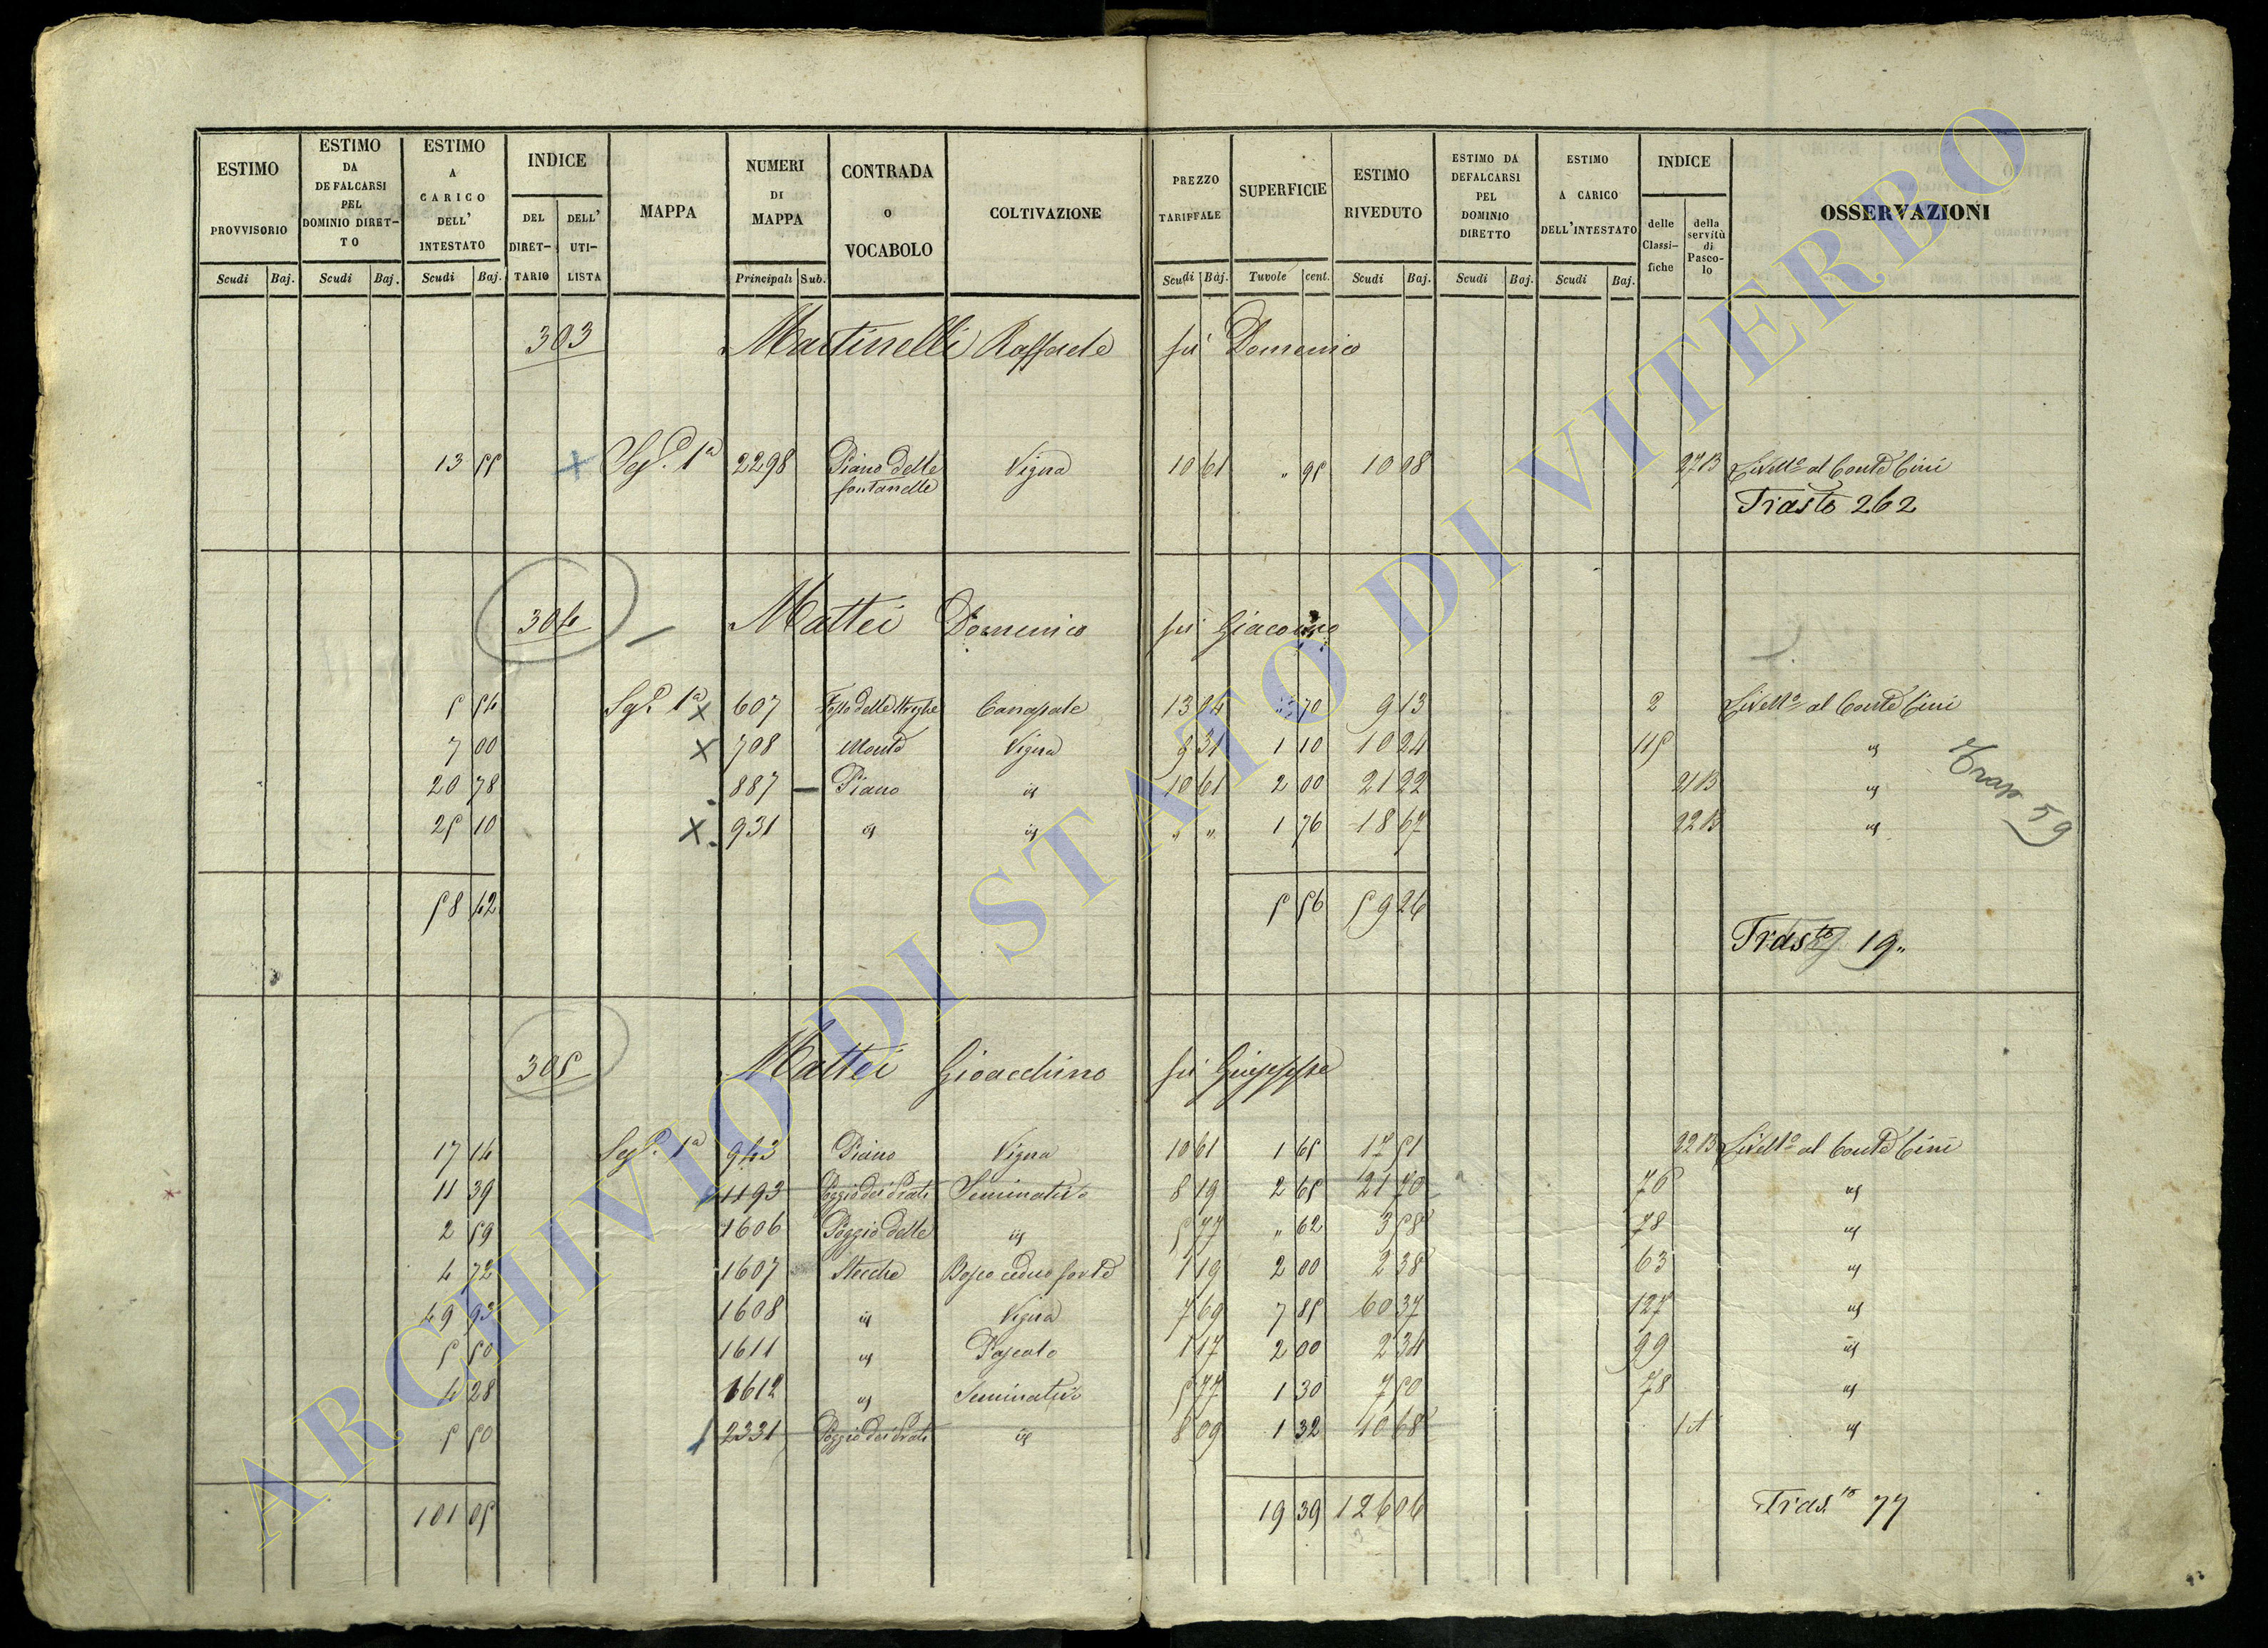 ESTIMO PROVVISORIO | ESTIMO DA DEFALCARSI PEL DOMINIO DIRETTO | ESTIMO A CARICO DELL' INTESTATO | INDICE DEL DIRETTARIO | DELL' UTILISTA | MAPPA | NUMERI DI MAPPA | CONTRADA O VOCABOLO | COLTIVAZIONE | PREZZO TARIFFALE | SUPERFICIE | ESTIMO RIVEDUTO | ESTIMO DA DEFALCARSI PEL DOMINIO DIRETTO | ESTIMO A CARICO DELL'INTESTATO | INDICE delle Classifiche | della servitù di Pascolo | OSSERVAZIONI
Scudi Baj. Scudi Baj. Scudi Baj. Principali Sub. Scudi Baj. Tavole cent. Scudi Baj. Scudi Baj. Scudi Baj.
303 Martinelli Raffaele fu Domenico
13 55 Seg.e 1a 2298 Piano delle fontanelle Vigna 10 61 " 95 10 08 27 B Livell.o al Conte Cini
Trasto 262
304 Mattei Domenico fu Giacomo
5 54 Seg.e 1a X 607 Canapale 13 04 " 70 9 13 2 Livell.o al Conte Cini
7 00 X 708 Monte Vigna 9 31 1 10 10 24 115 id
20 78 887 Piano id 10 61 2 00 21 22 21 B id
25 10 X 931 id id " " 1 76 18 67 22 B id
Trasp 59
58 42 5 56 59 26
Trasto 19"
305 Mattei Gioacchino fu Giuseppe
17 14 Seg.e 1a 943 Piano Vigna 10 61 1 65 17 51 22 B Livell.o al Conte Cini
11 39 1193 Poggio dei Prati Seminativo 8 19 2 65 21 70 76 id
2 59 1606 Poggio delle id 5 77 " 62 3 58 78 id
4 72 1607 Stecche Bosco ceduo forte 1 19 2 00 2 38 63 id
49 93 1608 id Vigna 7 69 7 85 60 37 127 id
5 50 1611 id Pascolo 1 17 2 00 2 34 99 id
4 28 1612 id Seminativo 5 77 1 30 7 50 78 id
5 50 2331 Poggio dei Prati id 8 09 1 32 10 68 1 A id
101 05 19 39 126 06
Tras.to 77
ARCHIVIO DI STATO DI VITERBO